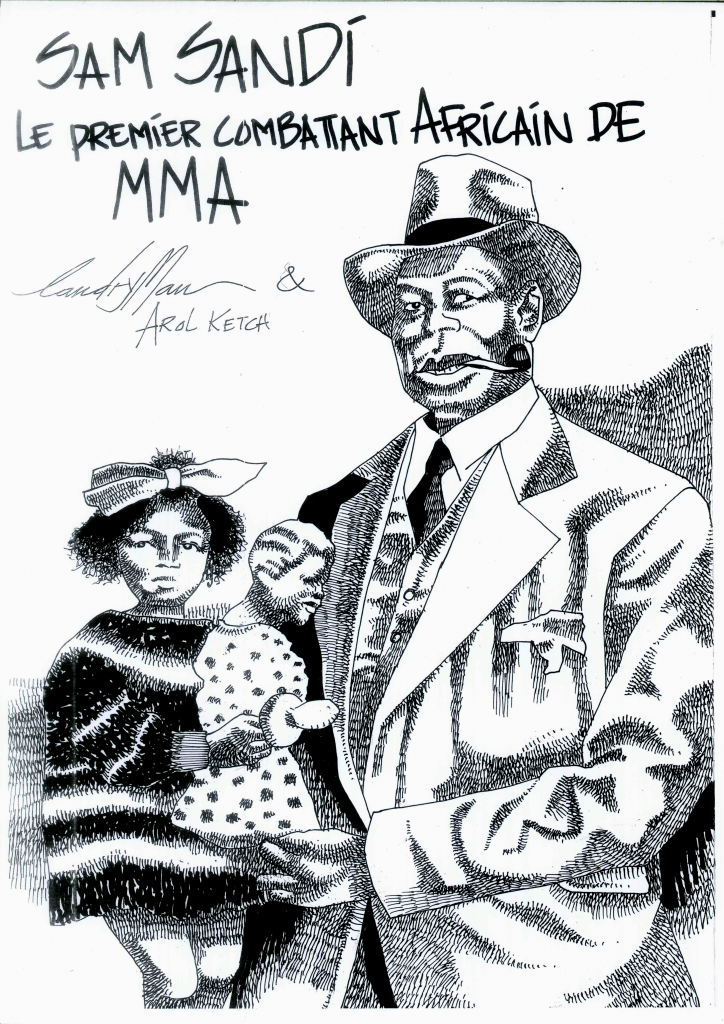 SAM SANDI
LE PREMIER COMBATTANT AFRICAIN DE
MMA
&
AROL KETCH